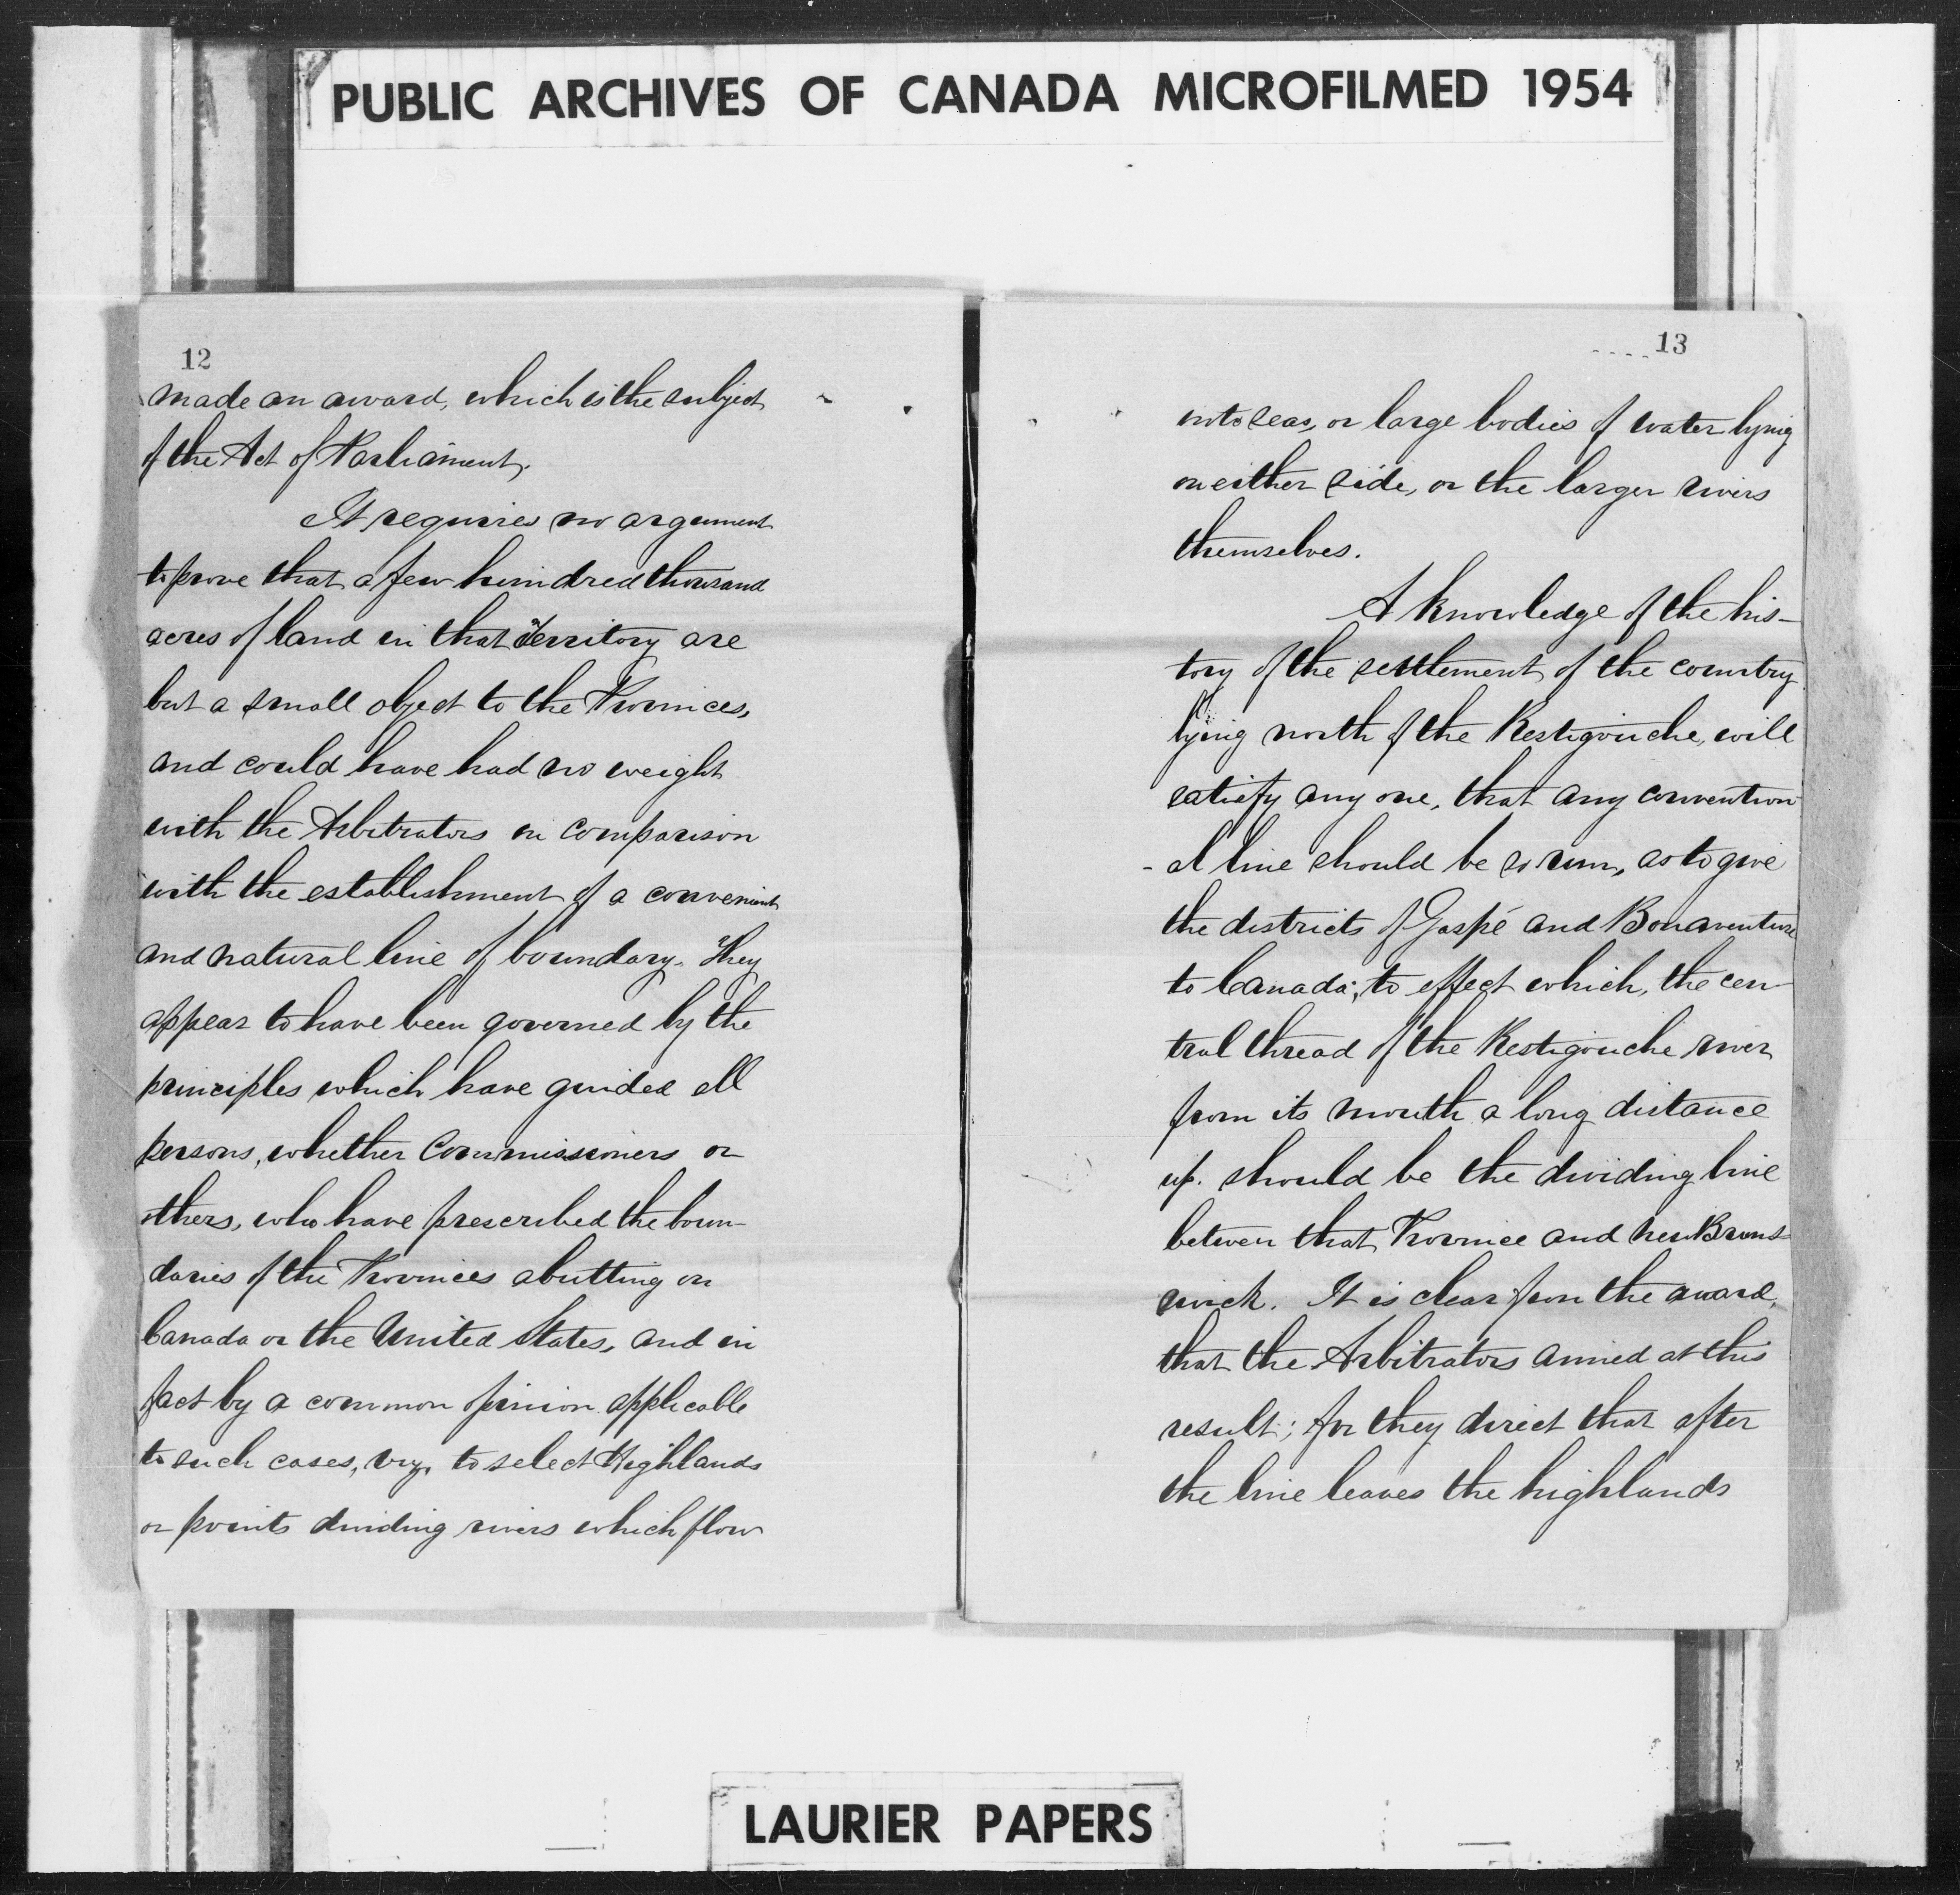 PUBLIC ARCHIVES OF CANADA MICROFILMED 1954
12
made an award, which is the subject
of the Act of Parliament.
It requires no argument
to prove that a few hundred thousand
acres of land in that Territory are
but a small object to the Provinces,
and could have had no weight
with the Arbitrators in comparison
with the establishment of a convenient
and natural line of boundary. They
appear to have been governed by the
principles which have guided all
persons, whether Commissioners or
others, who have prescribed the boun-
daries of the Provinces abutting on
Canada or the United States, and in
fact by a common opinion applicable
to such cases, viz, to select Highlands
or points dividing rivers which flow
13
into seas, or large bodies of water lying
on either side, or the larger rivers
themselves.
A knowledge of the his-
tory of the settlement of the country
lying north of the Restigouche, will
satisfy any one, that any convention
-al line should be so run, as to give
the districts of Gaspé and Bonaventure
to Canada; to effect which, the cen-
tral thread of the Restigouche river
from its mouth a long distance
up. should be the dividing line
between that Province and New Bruns-
wick. It is clear from the award,
that the Arbitrators aimed at this
result; for they direct that after
the line leaves the highlands
LAURIER PAPERS